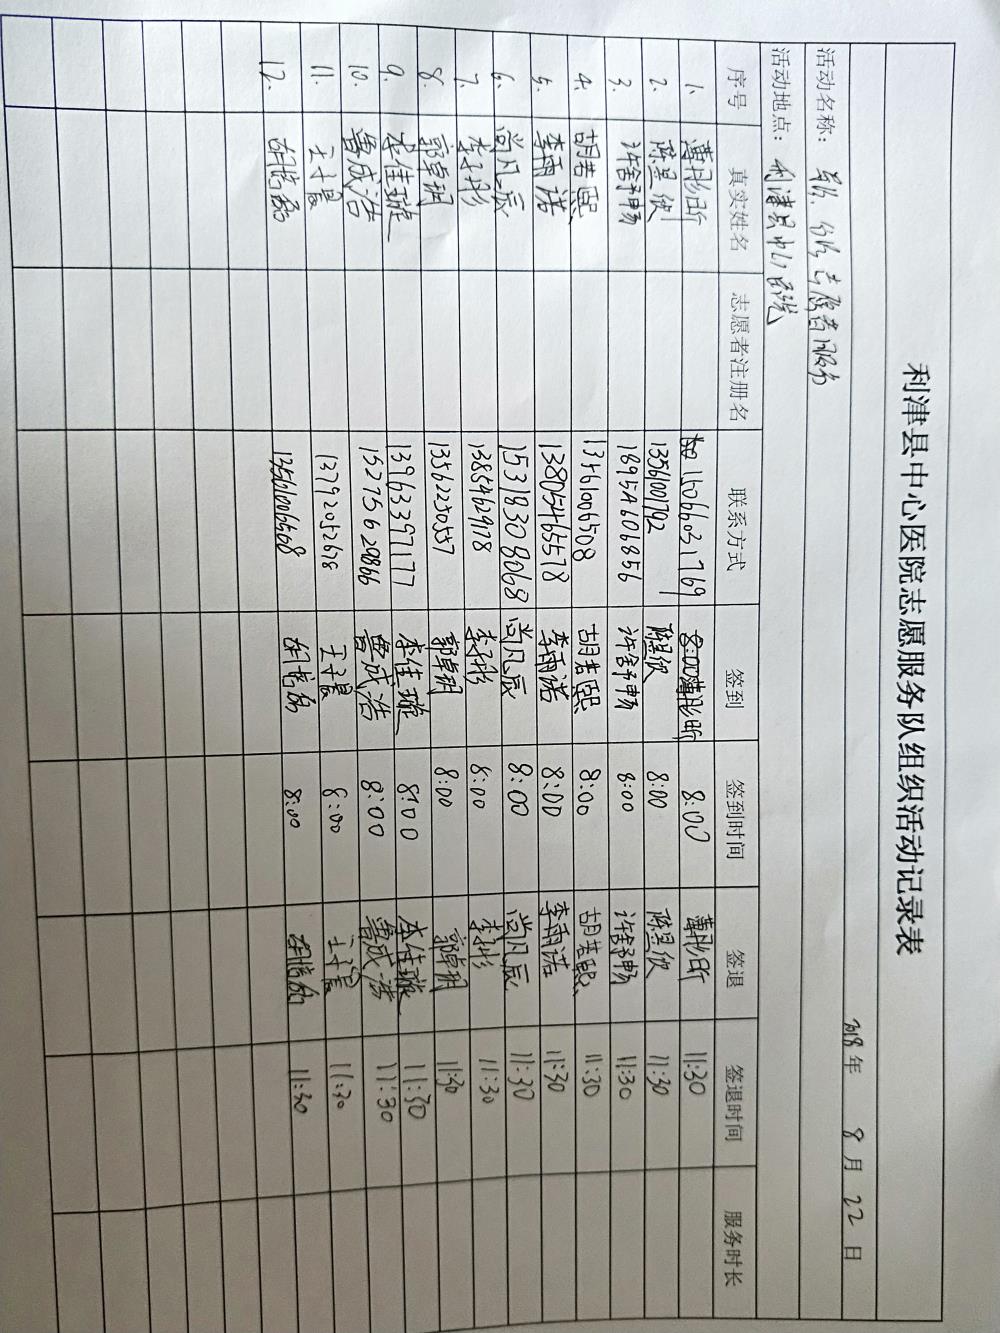 利津县中心医院志愿服务队组织活动记录表
2018年 8月 22日
活动名称： 导诊、分诊志愿者服务
活动地点： 利津县中心医院
序号 真实姓名 志愿者注册名 联系方式 签到 签到时间 签退 签退时间 服务时长
1. 薄彤昕 15066031769 8:00薄彤昕 8:00 薄彤昕 11:30
2. 陈昱攸 13561001702 陈昱攸 8:00 陈昱攸 11:30
3. 许舒畅 18954606856 许舒畅 8:00 许舒畅 11:30
4. 胡若熙 13561006508 胡若熙 8:00 胡若熙 11:30
5. 李雨诺 13805465578 李雨诺 8:00 李雨诺 11:30
6. 尚凡辰 15318308068 尚凡辰 8:00 尚凡辰 11:30
7. 李子彤 13854629178 8:00 11:30
8. 郭卓玥 13562230557 郭卓玥 8:00 郭卓玥 11:30
9. 李佳璇 13963397177 李佳璇 8:00 李佳璇 11:30
10. 鲁成浩 15275620866 鲁成浩 8:00 鲁成浩 11:30
11. 王子晨 13792052678 王子晨 8:00 王子晨 11:30
12. 13561006568 8:00 11:30